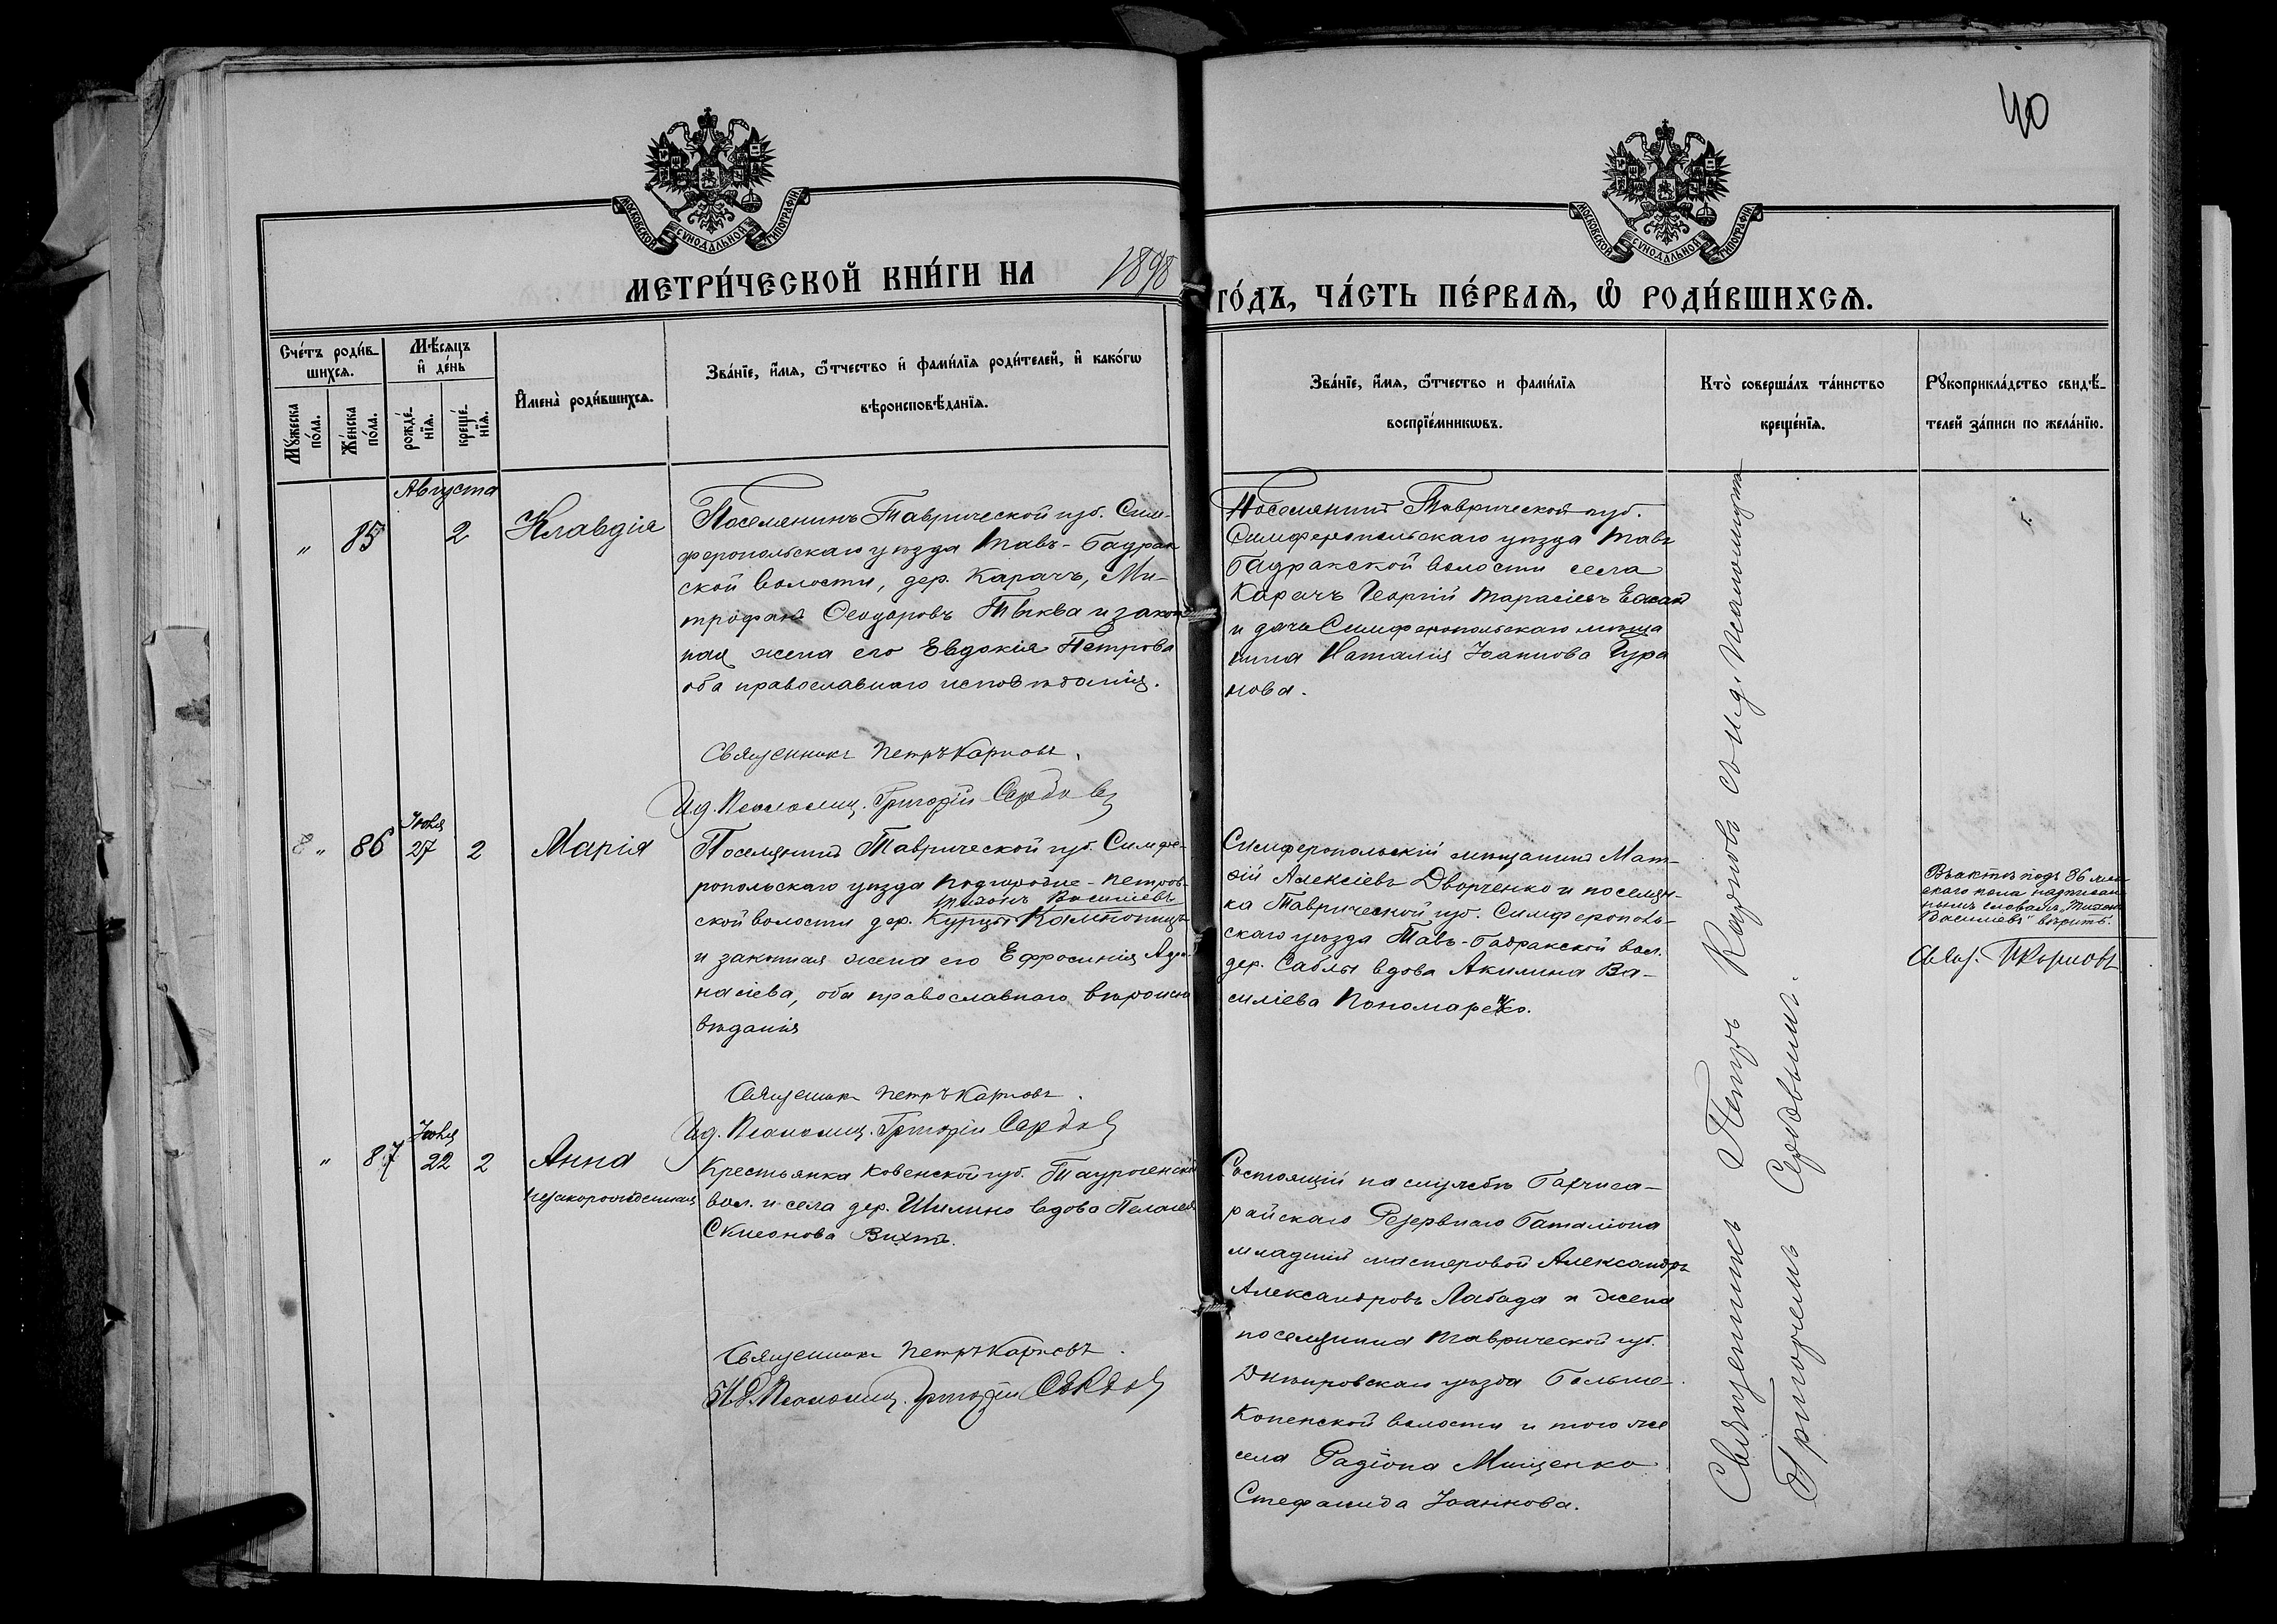 40
МОСКОВСКОЙ СѴНОДАЛЬНОЙ ТИПОГРАФІИ
МОСКОВСКОЙ СѴНОДАЛЬНОЙ ТИПОГРАФІИ
МЕТРИ́ЧЕСКОЙ КНИ́ГИ НА 1898 ГО́ДЪ, ЧА́СТЬ ПЕ́РВАѦ, Ѡ҆ РОДИ́ВШИХСѦ.
Сче́тъ роди́в-
шихсѧ.
Мꙋ́жеска
по́ла.
Же́нска
по́ла.
Мѣ́сѧцъ
и҆ де́нь
рожде́-
нїѧ.
креще́-
нїѧ.
И҆мена̀ роди́вшихсѧ.
Зва́нїе, и҆́мѧ, ѻ҆́тчество и҆ фами́лїѧ роди́телей, и҆ како́гѡ
вѣроисповѣ́данїѧ.
Зва́нїе, и҆́мѧ, ѻ҆́тчество и фами́лїѧ
воспрїе́мникѡвъ.
Кто̀ соверша́лъ та́инство
креще́нїѧ.
Рꙋкоприкла́дство свидѣ́-
телей за́писи по жела́нїю.
Августа
" 85 2 Клавдія
Поселянинъ Таврической губ. Сим-
феропольскаго уѣзда Тавъ-Бадрак
ской волости, дер. Карачъ, Ми-
трофанъ Ѳеодоровъ Тыква и закон
ная жена его Евдокія Петрова
оба православнаго исповѣданія.
Священникъ Петръ Карповъ.
И.д. Псаломщ. Григорій Сердовъ
Поселянинъ Таврической губ.
Симферопольскаго уѣзда Тавъ
Бадракской волости села
Карачъ Георгій Тарасіевъ
и дочь Симферопольскаго мѣща
нина Наталія Іоаннова
нова.
Іюля
" 86 27 2 Марія
Поселянинъ Таврической губ. Симфе-
ропольскаго уѣзда Подгородне-Петров-
Тихонъ Василіевъ
ской волости дер. Курцы
и законная жена его Ефросинія Аѳа-
насіева, оба православнаго вѣроиспо
вѣданія
Священникъ Петръ Карповъ.
И.д. Псаломщ. Григорій Сердовъ
Симферопольскій мѣщанинъ Мат-
ѳій Алексіевъ Дворченко и поселян-
ка Таврической губ. Симферополь-
скаго уѣзда Тавъ-Бадракской вол.
дер. Саблы вдова Акилина Ва-
силіева Пономаренко.
Въ актѣ подъ 86 жен
скаго пола надписан
нымъ словамъ "Тихонъ
Василіевъ" вѣрить.
Свящ. П Карповъ
Іюля
" 87 22 2 Анна
незаконорожденная
Крестьянка Ковенской губ. Таурогенской
вол. и села дер. Шилино вдова Пелагея
Симеонова Вихтъ.
Священникъ Петръ Карповъ.
И.д. Псаломщ. Григорій Сердовъ
Состоящій на службѣ Бахчиса-
райскаго Резервнаго Баталіона
младшій мастеровой Александръ
Александровъ Лабада и жена
поселянина Таврической губ.
Днѣпровскаго уѣзда Больше-
Копенской волости и того же
села Радіона Мищенко
Стефанида Іоаннова.
Священникъ Петръ Карповъ съ и.д. Псаломщика
Григоріемъ Сердовымъ.